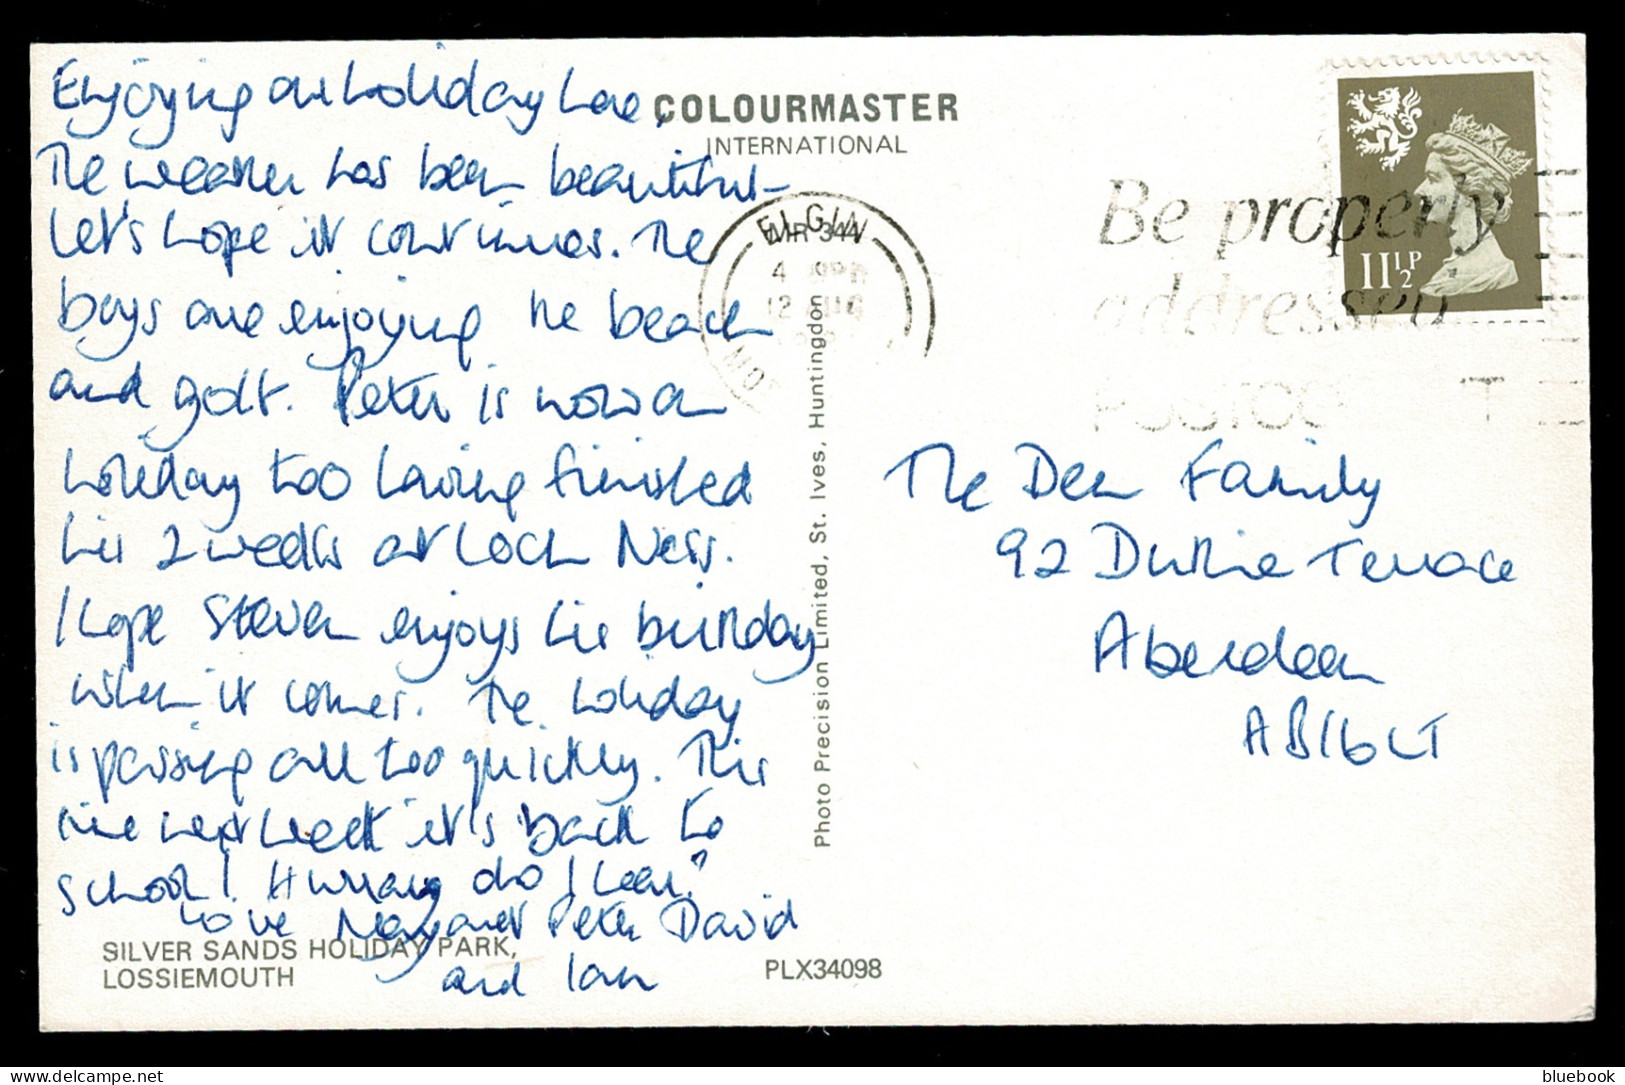 Enjoying our holiday here.
The weather has been beautiful -
let's hope it continues. The
boys are enjoying the beach
and golf. Peter is now on
holiday too having finished
his 2 weeks at Loch Ness.
I hope Steven enjoys his birthday
when it comes. The holiday
is passing all too quickly. This
time next week it's back to
school! Hurray do I hear?
Love Margaret Peter David
and Ian
SILVER SANDS HOLIDAY PARK,
LOSSIEMOUTH
PLX34098
COLOURMASTER
INTERNATIONAL
Photo Precision Limited, St. Ives, Huntingdon
ELGIN
12 AUG
Be properly
addressed
11½P
The Dear Family
92 Duthie Terrace
Aberdeen
AB1 6LT
bluebook